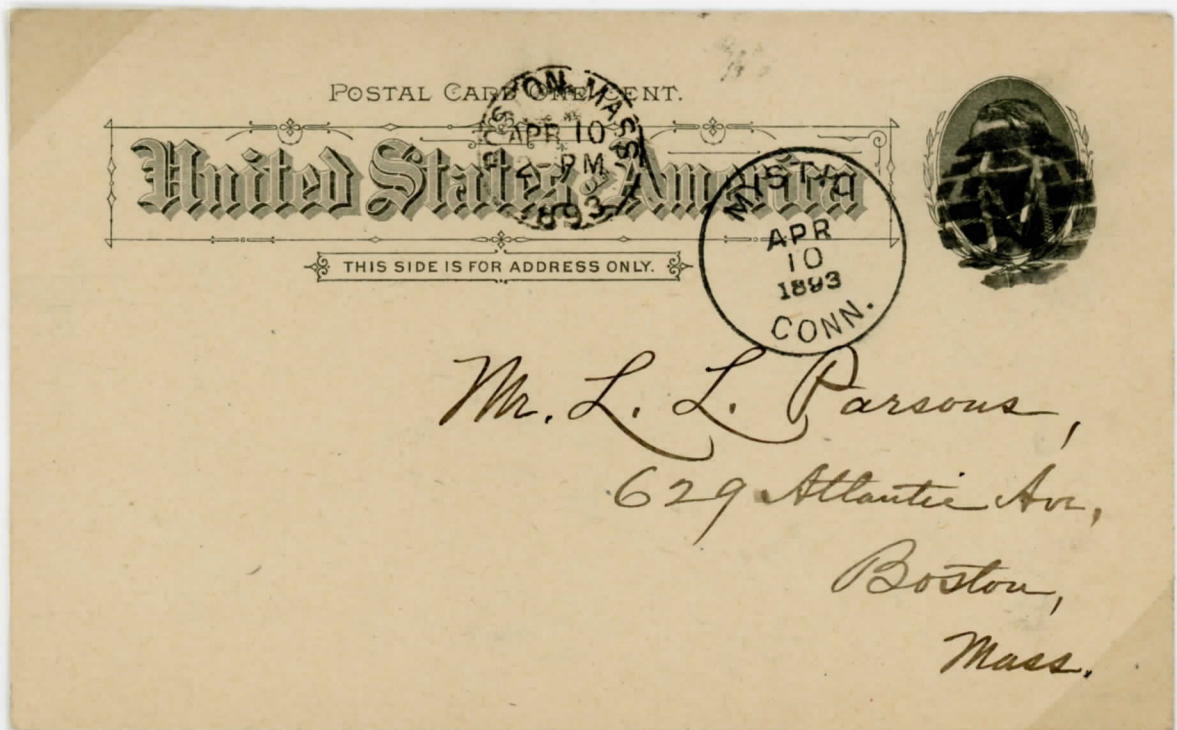 POSTAL CARD ONE CENT.
United States of America
THIS SIDE IS FOR ADDRESS ONLY.
BOSTON MASS
APR 10
PM
1893
MYSTIC
APR
10
1893
CONN.
Mr. L. L. Parsons,
629 Atlantic Ave,
Boston,
Mass.